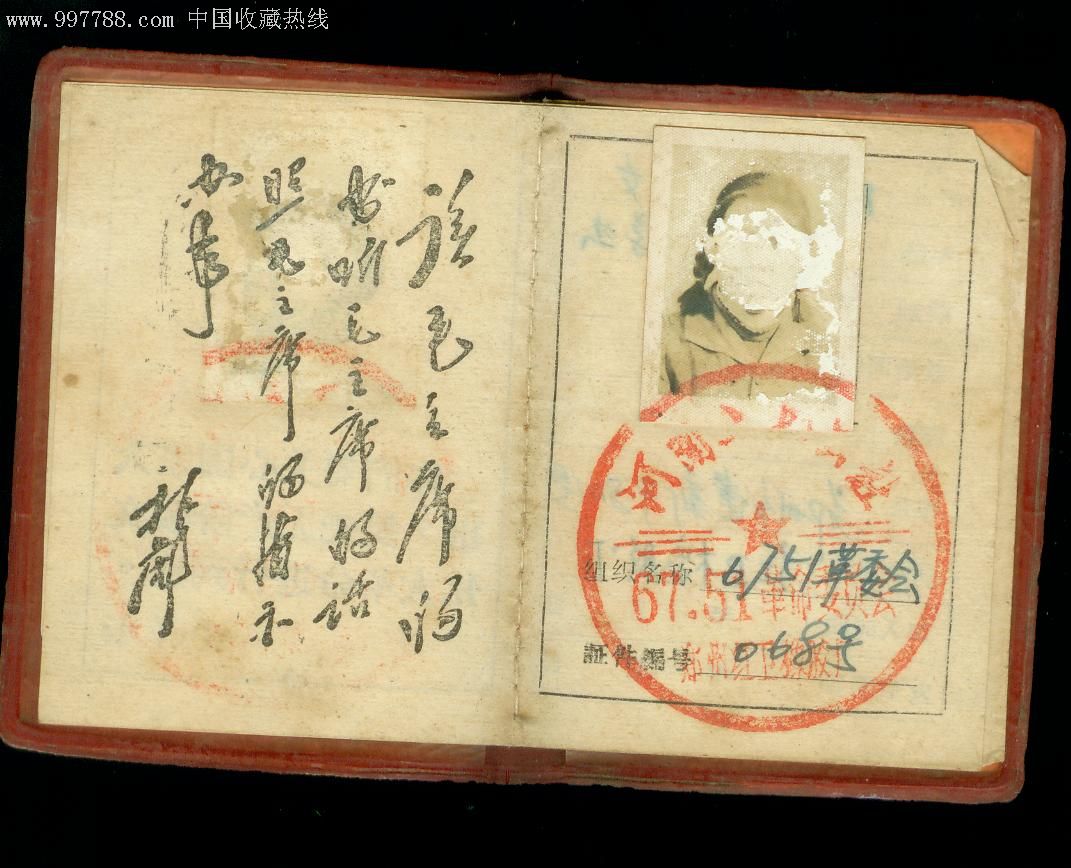 www.997788.com 中国收藏热线
读毛主席的
书听毛主席的话
照毛主席的指示
办事
林彪
全国
组织名称 6751革委会
67.51革命委员会
証件編号 068号